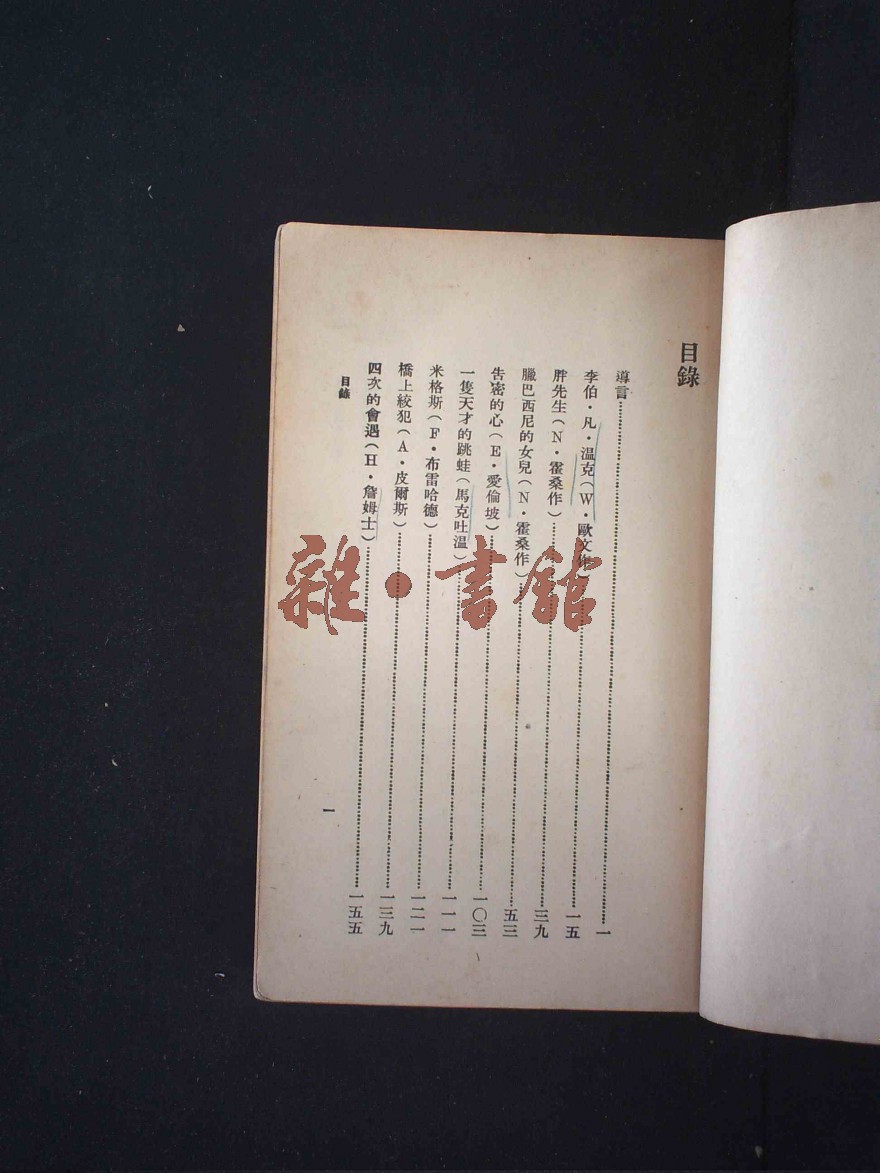 目錄
導言……一
李伯·凡·溫克(W·歐文作)……一五
胖先生(N·霍桑作)……三九
臘巴西尼的女兒(N·霍桑作)……五三
告密的心(E·愛倫坡)……一〇三
一隻天才的跳蛙(馬克吐溫)……一一一
米格斯(F·布雷哈德)……一二一
橋上絞犯(A·皮爾斯)……一三九
四次的會遇(H·詹姆士)……一五五
目錄
一
雜·書館